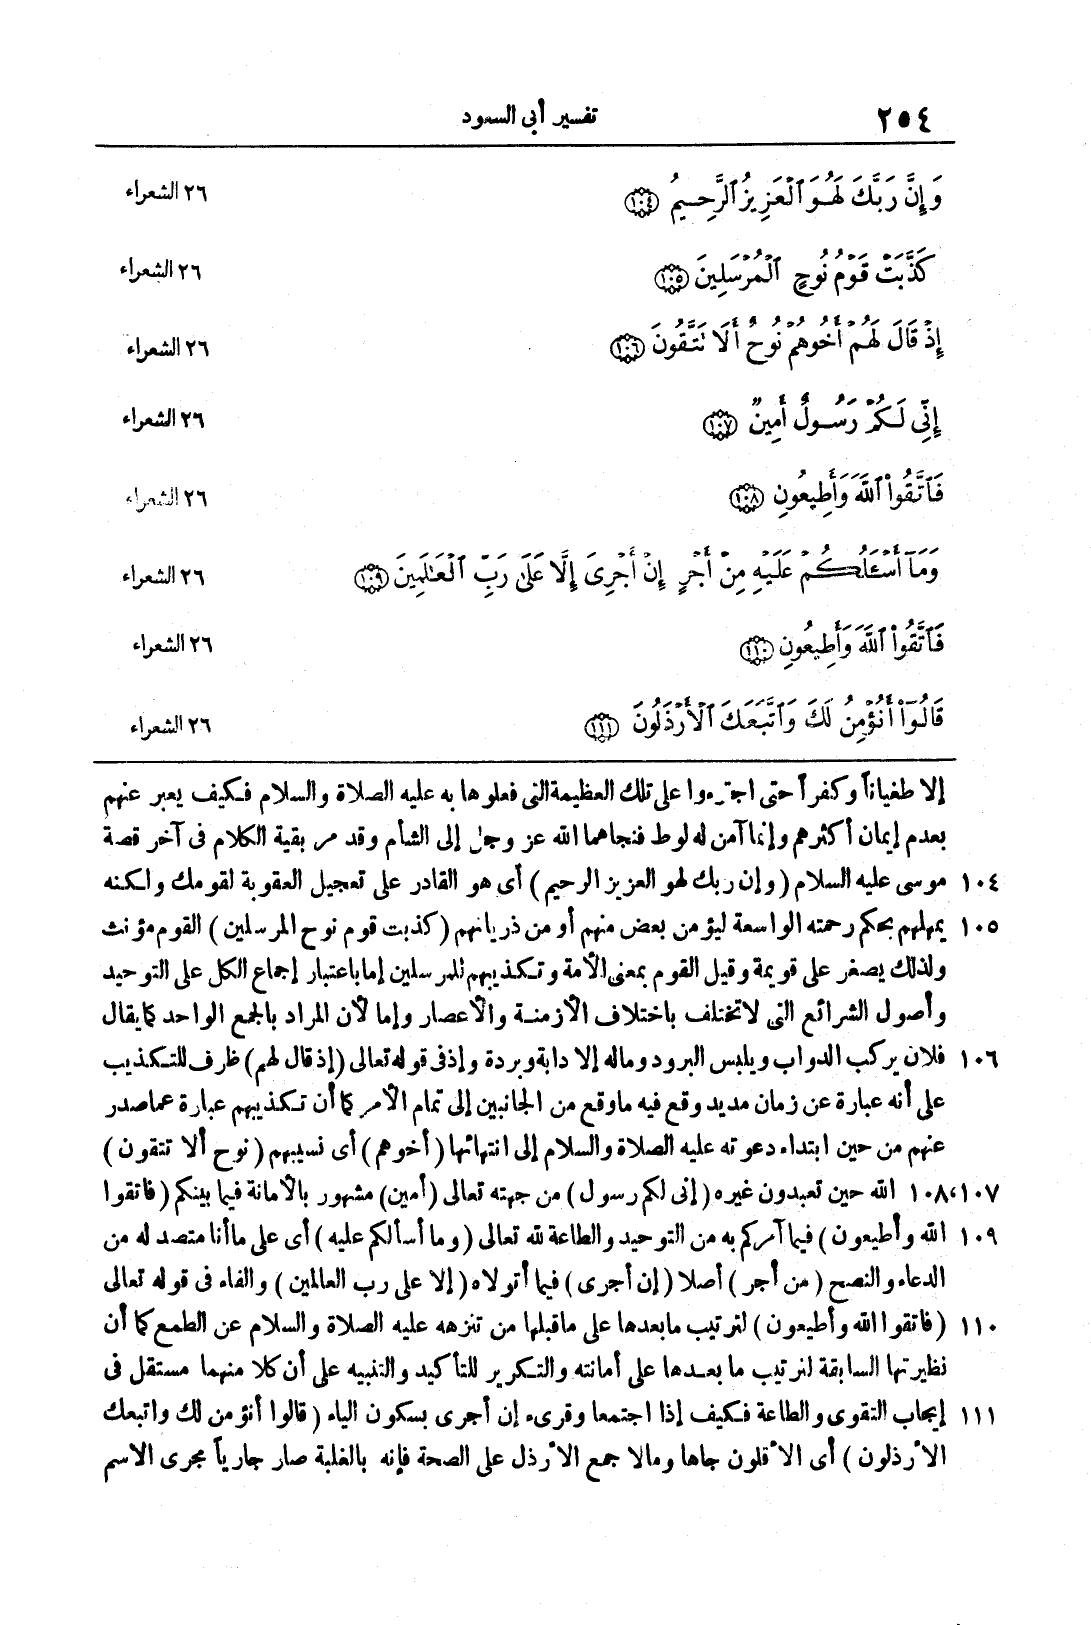 ٢٥٤ تفسير أبى السعود
وَإِنَّ رَبَّكَ لَهُوَ ٱلْعَزِيزُ ٱلرَّحِيمُ ١٠٤ ٢٦ الشعراء
كَذَّبَتْ قَوْمُ نُوحٍ ٱلْمُرْسَلِينَ ١٠٥ ٢٦ الشعراء
إِذْ قَالَ لَهُمْ أَخُوهُمْ نُوحٌ أَلَا تَتَّقُونَ ١٠٦ ٢٦ الشعراء
إِنِّى لَكُمْ رَسُولٌ أَمِينٌ ١٠٧ ٢٦ الشعراء
فَٱتَّقُوا۟ ٱللَّهَ وَأَطِيعُونِ ١٠٨ ٢٦ الشعراء
وَمَآ أَسْـَٔلُكُمْ عَلَيْهِ مِنْ أَجْرٍ إِنْ أَجْرِىَ إِلَّا عَلَىٰ رَبِّ ٱلْعَـٰلَمِينَ ١٠٩ ٢٦ الشعراء
فَٱتَّقُوا۟ ٱللَّهَ وَأَطِيعُونِ ١١٠ ٢٦ الشعراء
قَالُوٓا۟ أَنُؤْمِنُ لَكَ وَٱتَّبَعَكَ ٱلْأَرْذَلُونَ ١١١ ٢٦ الشعراء
إلا طغياناً وكفراً حتى اجترءوا على تلك العظيمة التى فعلوها به عليه الصلاة والسلام فكيف يعبر عنهم
بعدم إيمان أكثرهم وإنما آمن له لوط فنجاهما الله عز وجل إلى الشأم وقد مر بقية الكلام فى آخر قصة
١٠٤ موسى عليه السلام ( وإن ربك لهو العزيز الرحيم ) أى هو القادر على تعجيل العقوبة لقومك ولكنه
١٠٥ يمهلهم بحكم رحمته الواسعة ليؤمن بعض منهم أو من ذرياتهم ( كذبت قوم نوح المرسلين ) القوم مؤنث
ولذلك يصغر على قويمة وقيل القوم بمعنى الأمة وتكذيبهم للمرسلين إما باعتبار إجماع الكل على التوحيد
وأصول الشرائع التى لا تختلف باختلاف الأزمنة والأعصار وإما لأن المراد بالجمع الواحد كما يقال
١٠٦ فلان يركب الدواب ويلبس البرود وماله إلا دابة وبردة وإذ فى قوله تعالى ( إذ قال لهم ) ظرف للتكذيب
على أنه عبارة عن زمان مديد وقع فيه ما وقع من الجانبين إلى تمام الأمر كما أن تكذيبهم عبارة عما صدر
عنهم من حين ابتداء دعوته عليه الصلاة والسلام إلى انتهائها ( أخوهم ) أى نسيبهم ( نوح ألا تتقون )
١٠٧،١٠٨ الله حين تعبدون غيره ( إنى لكم رسول ) من جهته تعالى ( أمين ) مشهور بالأمانة فيما بينكم ( فاتقوا
١٠٩ الله وأطيعون ) فيما آمركم به من التوحيد والطاعة لله تعالى ( وما أسألكم عليه ) أى على ما أنا متصد له من
الدعاء والنصح ( من أجر ) أصلا ( إن أجرى ) فيما أتولاه ( إلا على رب العالمين ) والفاء فى قوله تعالى
١١٠ ( فاتقوا الله وأطيعون ) لترتيب ما بعدها على ما قبلها من تنزهه عليه الصلاة والسلام عن الطمع كما أن
نظيرتها السابقة لترتيب ما بعدها على أمانته والتكرير للتأكيد والتنبيه على أن كلا منهما مستقل فى
١١١ إيجاب التقوى والطاعة فكيف إذا اجتمعا وقرىء إن أجرى بسكون الياء ( قالوا أنؤمن لك واتبعك
الأرذلون ) أى الأقلون جاها ومالا جمع الأرذل على الصحة فإنه بالغلبة صار جارياً مجرى الاسم